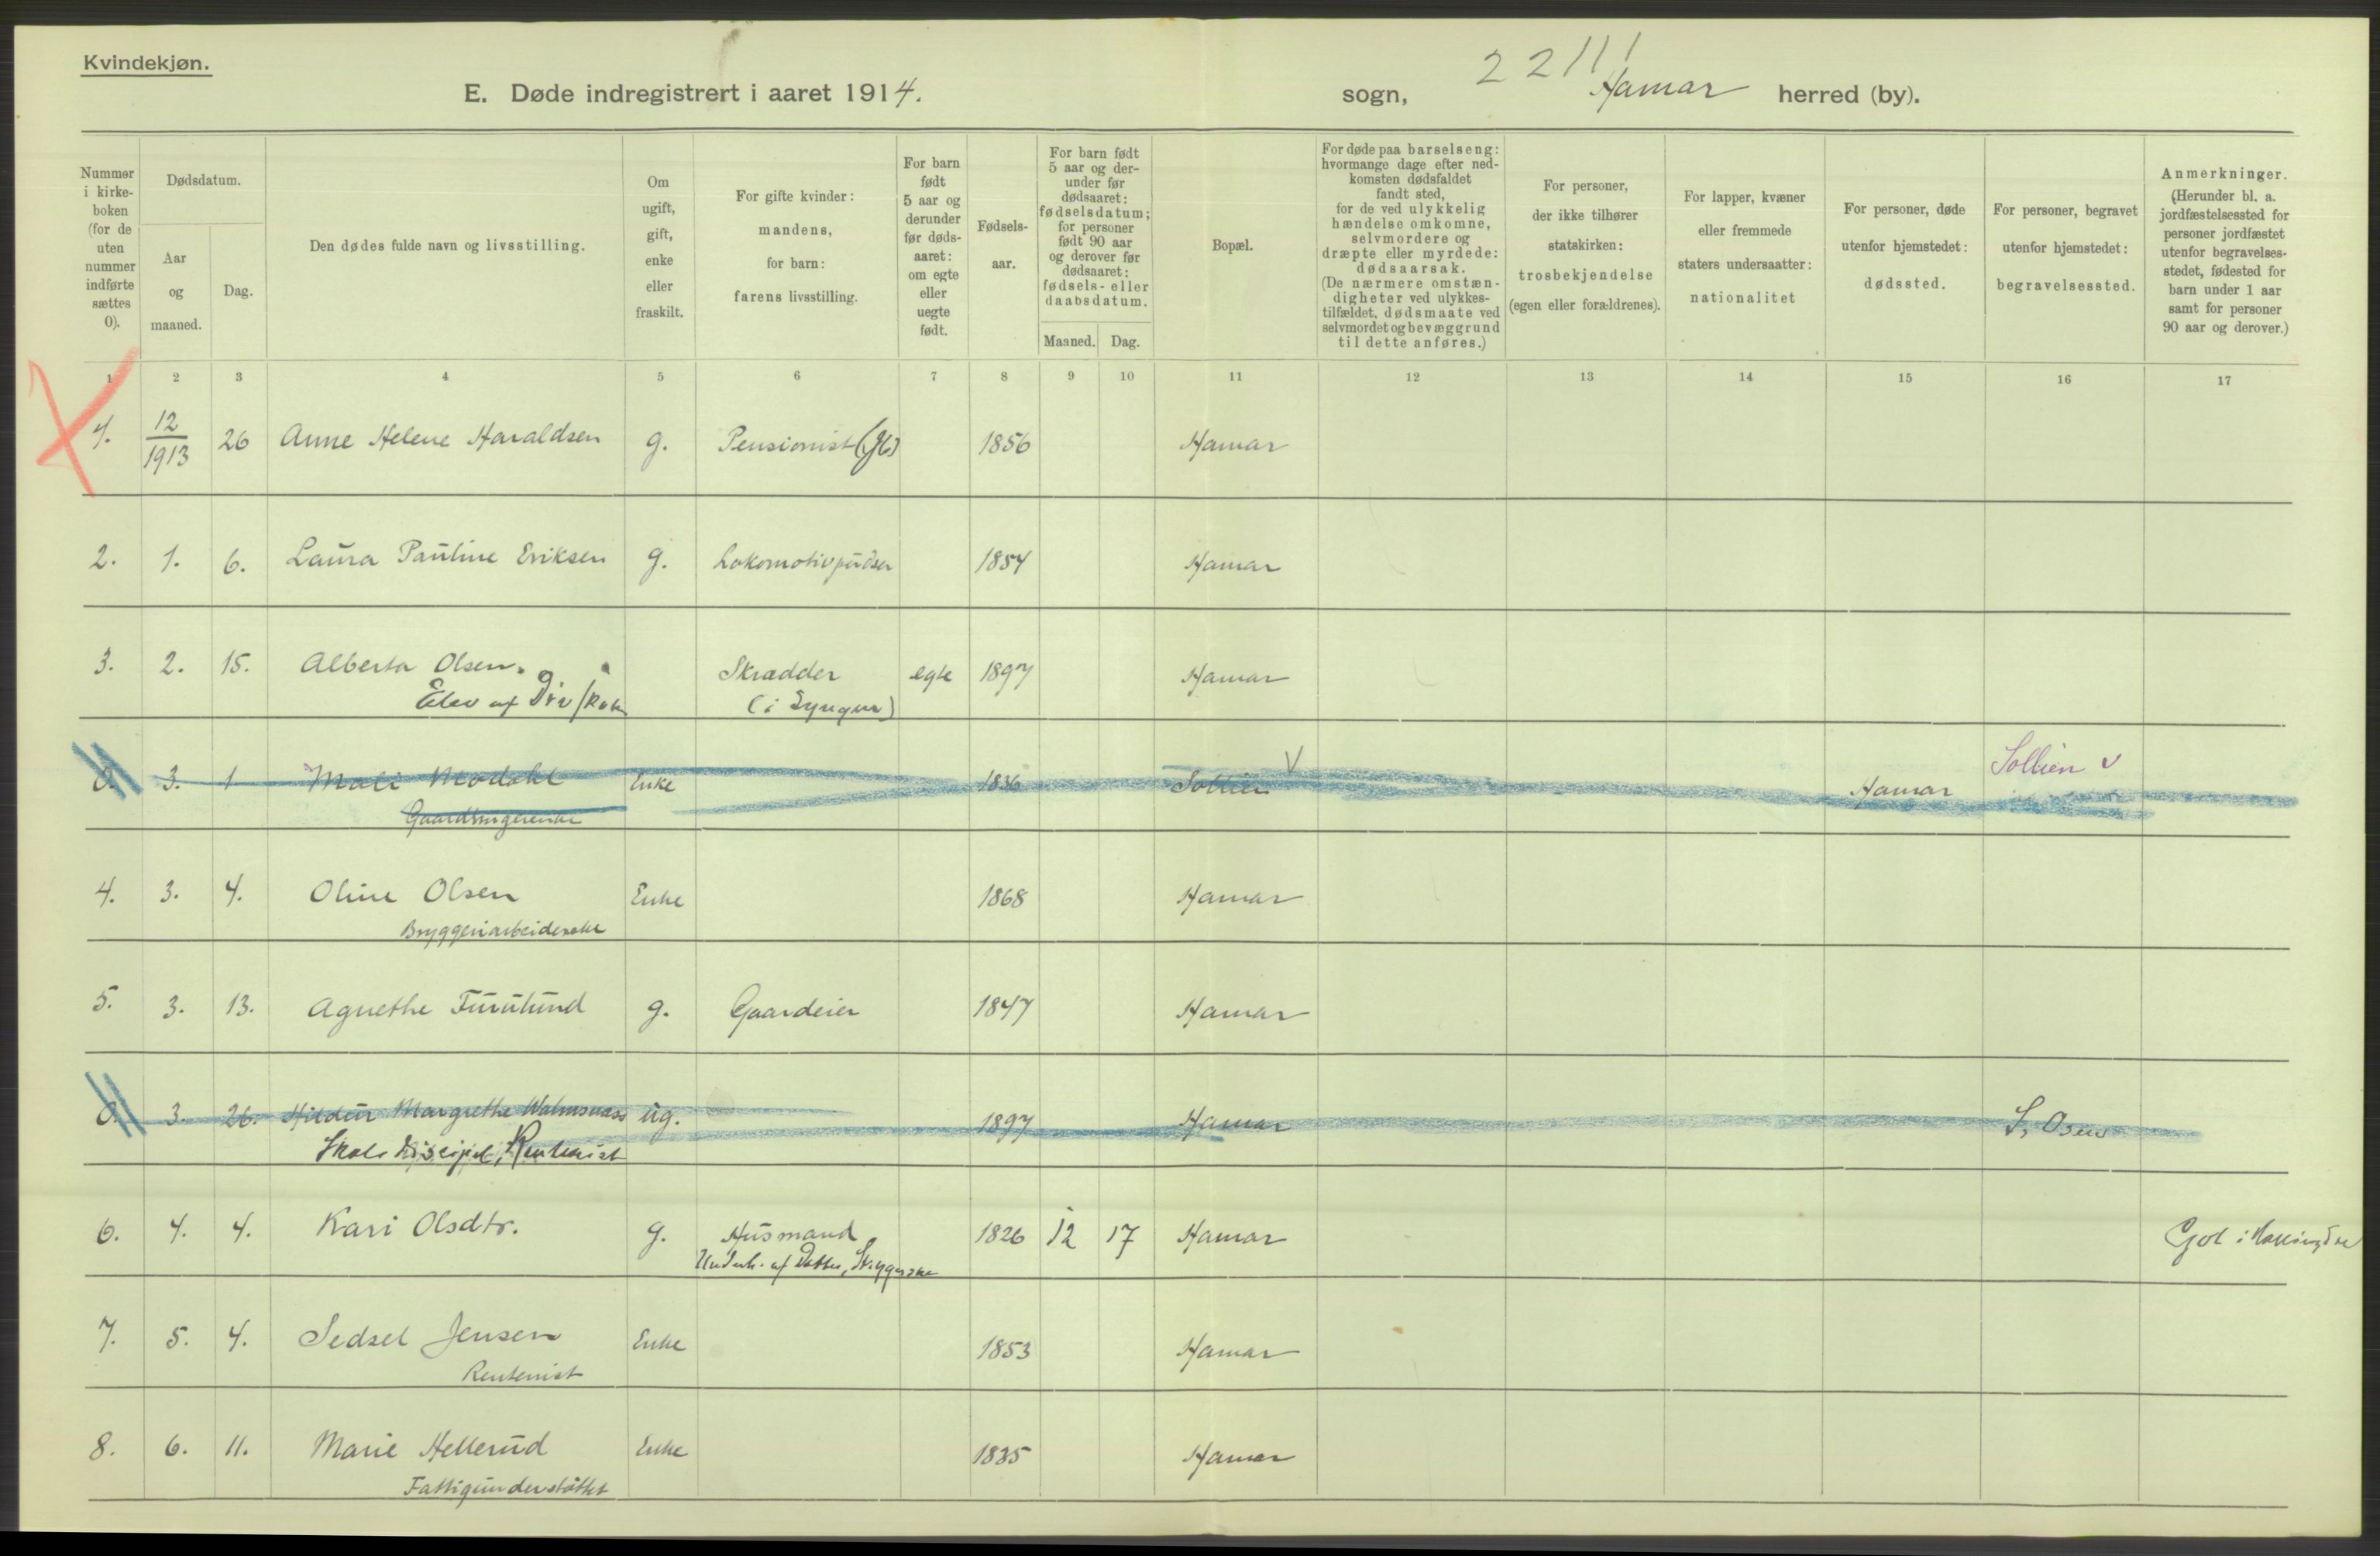 Kvindekjøn.
22111
E. Døde indregistrert i aaret 1914. sogn, Hamar herred (by).
Nummer i kirke-boken (for de uten nummer indførte sættes 0).
Dødsdatum.
Aar og maaned.
Dag.
Den dødes fulde navn og livsstilling.
Om ugift, gift, enke eller fraskilt.
For gifte kvinder: mandens, for barn: farens livsstilling.
For barn født 5 aar og derunder før døds-aaret: om egte eller uegte født.
Fødsels-aar.
For barn født 5 aar og der-under før dødsaaret: fødselsdatum; for personer født 90 aar og derover før dødsaaret: fødsels- eller daabsdatum.
Maaned. Dag.
Bopæl.
For døde paa barselseng: hvormange dage efter ned-komsten dødsfaldet fandt sted, for de ved ulykkelig hændelse omkomne, selvmordere og dræpte eller myrdede: dødsaarsak. (De nærmere omstæn-digheter ved ulykkes-tilfældet, dødsmaate ved selvmordet og bevæggrund til dette anføres.)
For personer, der ikke tilhører statskirken: trosbekjendelse (egen eller forældrenes).
For lapper, kvæner eller fremmede staters undersaatter: nationalitet
For personer, døde utenfor hjemstedet: dødssted.
For personer, begravet utenfor hjemstedet: begravelsessted.
Anmerkninger. (Herunder bl. a. jordfæstelsessted for personer jordfæstet utenfor begravelses-stedet, fødested for barn under 1 aar samt for personer 90 aar og derover.)
1 2 3 4 5 6 7 8 9 10 11 12 13 14 15 16 17
1. 12/1913 26 Anne Helene Haraldsen g. Pensionist 1856 Hamar
2. 1. 6. Laura Pauline Eriksen g. Lokomotivpudser 1854 Hamar
3. 2. 15. Alberta Olsen. Skrædder egte 1897 Hamar
Elev af
0. 3. 1 Mali Modahl Enke 1836 Sollien V Hamar Sollien v
4. 3. 4. Oline Olsen Enke 1868 Hamar
Bryggeriarbeiderske
5. 3. 13. Agnethe Furulund g. Gaardeier 1847 Hamar
0. 3. 26. Hildur Margrethe Walmsnæss ug. 1897 Hamar S. Osen
Skole Discipel, Rentenist
6. 4. 4. Kari Olsdtr. g. Husmand 1826 12 17 Hamar Gol i
Underh. af Datter, Strygerske
7. 5. 4. Sedsel Jensen Enke 1853 Hamar
Rentenist
8. 6. 11. Marie Hellerud Enke 1835 Hamar
Fattigunderstøttet